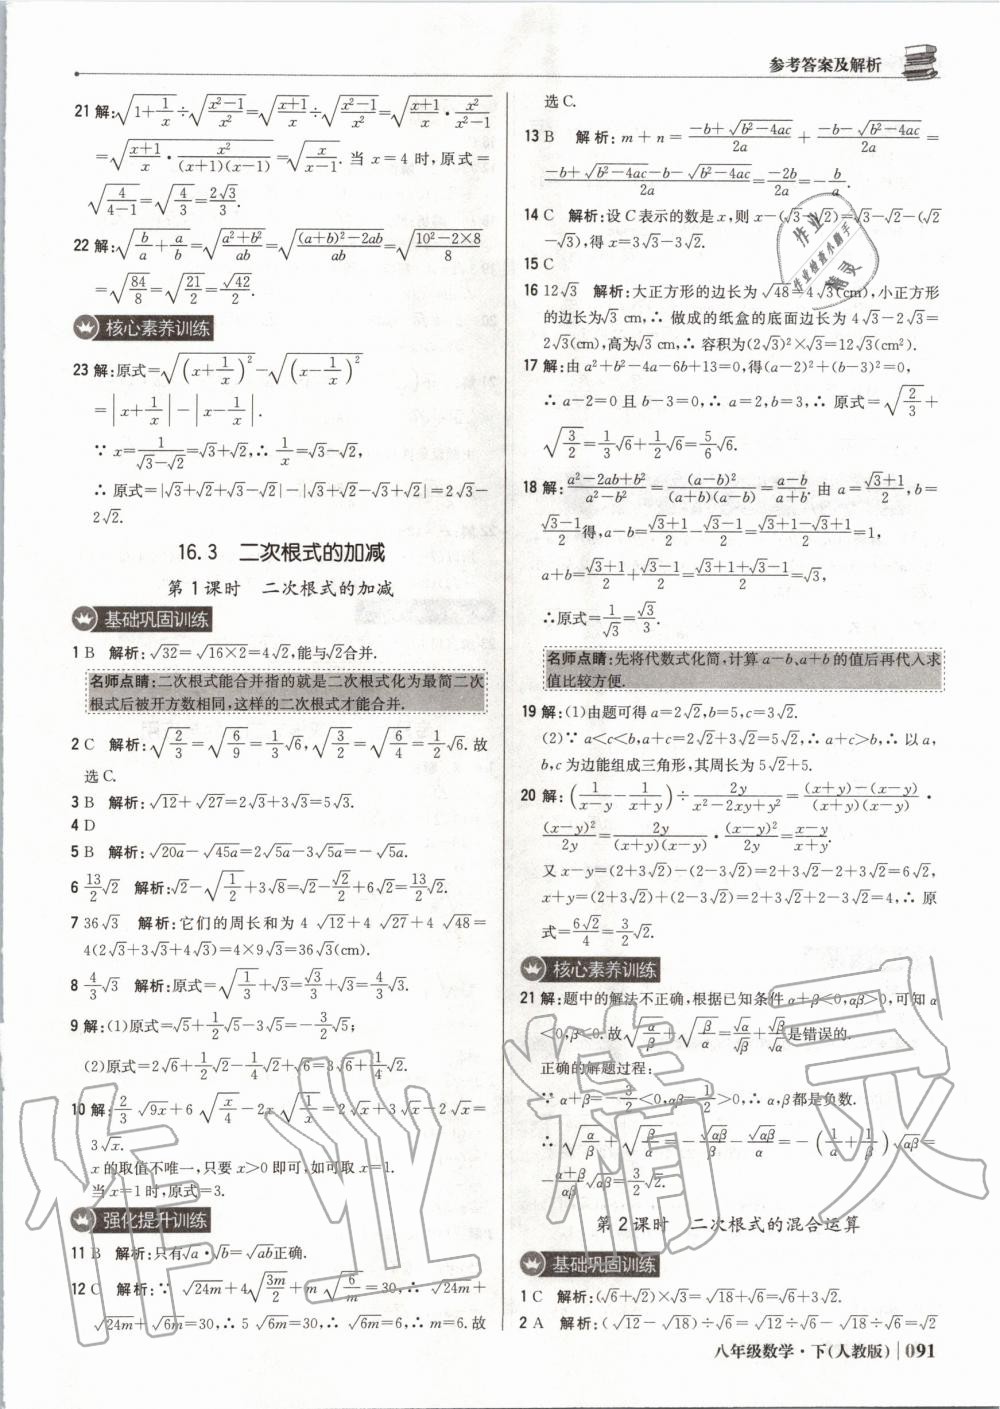 参考答案及解析
21 解:√(1+1/x)÷√((x²-1)/x²)=√((x+1)/x)÷√((x²-1)/x²)=√((x+1)/x·x²/(x²-1))
=√((x+1)/x·x²/((x+1)(x-1)))=√(x/(x-1)). 当 x=4 时,原式=
√(4/(4-1))=√(4/3)=2√3/3.
22 解:√(b/a+a/b)=√((a²+b²)/ab)=√(((a+b)²-2ab)/ab)=√((10²-2×8)/8)
=√(84/8)=√(21/2)=√42/2.
核心素养训练
23 解:原式=√((x+1/x)²)-√((x-1/x)²)
=|x+1/x|-|x-1/x|.
∵ x=1/(√3-√2)=√3+√2,∴ 1/x=√3-√2,
∴ 原式=|√3+√2+√3-√2|-|√3+√2-√3+√2|=2√3-
2√2.
16.3 二次根式的加减
第1课时 二次根式的加减
基础巩固训练
1 B 解析:√32=√(16×2)=4√2,能与√2合并.
名师点睛:二次根式能合并指的就是二次根式化为最简二次
根式后被开方数相同,这样的二次根式才能合并.
2 C 解析:√(2/3)=√(6/9)=1/3√6,√(3/2)=√(6/4)=1/2√6. 故
选C.
3 B 解析:√12+√27=2√3+3√3=5√3.
4 D
5 B 解析:√20a-√45a=2√5a-3√5a=-√5a.
6 13/2√2 解析:√2-√(1/2)+3√8=√2-√2/2+6√2=13/2√2.
7 36√3 解析:它们的周长和为 4√12+4√27+4√48=
4(2√3+3√3+4√3)=4×9√3=36√3(cm).
8 4/3√3 解析:原式=√(1/3)+√3=√3/3+√3=4/3√3.
9 解:(1)原式=√5+1/2√5-3√5=-3/2√5;
(2)原式=2√6+1/2√2-1/4√2+√6=3√6+1/4√2.
10 解:2/3√9x+6√(x/4)-2x√(1/x)=2√x+3√x-2√x=
3√x.
x 的取值不唯一,只要 x>0 即可,如可取 x=1.
当 x=1时,原式=3.
强化提升训练
11 B 解析:只有√a·√b=√ab正确.
12 C 解析:∵ √24m+4√(3m/2)+m√(6/m)=30,∴ √24m+
√24m+√6m=30,∴ 5√6m=30,∴ √6m=6,∴ m=6. 故
选C.
13 B 解析:m+n=(-b+√(b²-4ac))/2a+(-b-√(b²-4ac))/2a=
(-b+√(b²-4ac)-b-√(b²-4ac))/2a=-2b/2a=-b/a.
14 C 解析:设 C 表示的数是 x,则 x-(√3-√2)=√3-√2-(√2
-√3),得 x=3√3-3√2.
15 C
16 12√3 解析:大正方形的边长为√48=4√3(cm),小正方形
的边长为√3 cm,∴ 做成的纸盒的底面边长为 4√3-2√3=
2√3(cm),高为√3 cm,∴ 容积为(2√3)²×√3=12√3(cm²).
17 解:由 a²+b²-4a-6b+13=0,得(a-2)²+(b-3)²=0,
∴ a-2=0 且 b-3=0,∴ a=2,b=3,∴ 原式=√(2/3)+
√(3/2)=1/3√6+1/2√6=5/6√6.
18 解:(a²-2ab+b²)/(a²-b²)=(a-b)²/((a+b)(a-b))=(a-b)/(a+b). 由 a=(√3+1)/2,b=
(√3-1)/2得,a-b=(√3+1)/2-(√3-1)/2=(√3+1-√3+1)/2=1,
a+b=(√3+1)/2+(√3-1)/2=(√3+1+√3-1)/2=√3,
∴原式=1/√3=√3/3.
名师点睛:先将代数式化简,计算 a-b、a+b 的值后再代入求
值比较方便.
19 解:(1)由题可得 a=2√2,b=5,c=3√2.
(2)∵ a<c<b,a+c=2√2+3√2=5√2,∴ a+c>b,∴ 以 a,
b,c 为边能组成三角形,其周长为 5√2+5.
20 解:(1/(x-y)-1/(x+y))÷2y/(x²-2xy+y²)=((x+y)-(x-y))/((x+y)(x-y))·
(x-y)²/2y=2y/((x+y)(x-y))·(x-y)²/2y=(x-y)/(x+y).
又 x-y=(2+3√2)-(2-3√2)=2+3√2-2+3√2=6√2,
x+y=(2+3√2)+(2-3√2)=2+3√2+2-3√2=4,∴ 原
式=6√2/4=3/2√2.
核心素养训练
21 解:题中的解法不正确,根据已知条件 α+β<0,αβ>0,可知 α
<0,β<0. 故√(α/β)+√(β/α)=√α/√β+√β/√α是错误的.
正确的解题过程:
∵ α+β=-3/2<0,αβ=1/2>0,∴ α,β都是负数.
∴ √(α/β)+√(β/α)=-√αβ/β-√αβ/α=-(1/α+1/β)√αβ=
-(α+β)/αβ√αβ=3/2√2.
第2课时 二次根式的混合运算
基础巩固训练
1 C 解析:(√6+√2)×√3=√18+√6=√6+3√2.
2 A 解析:(√12-√18)÷√6=√12÷√6-√18÷√6=√2
八年级数学·下(人教版) 091
作业
作业检查小助手
精灵
作业精灵